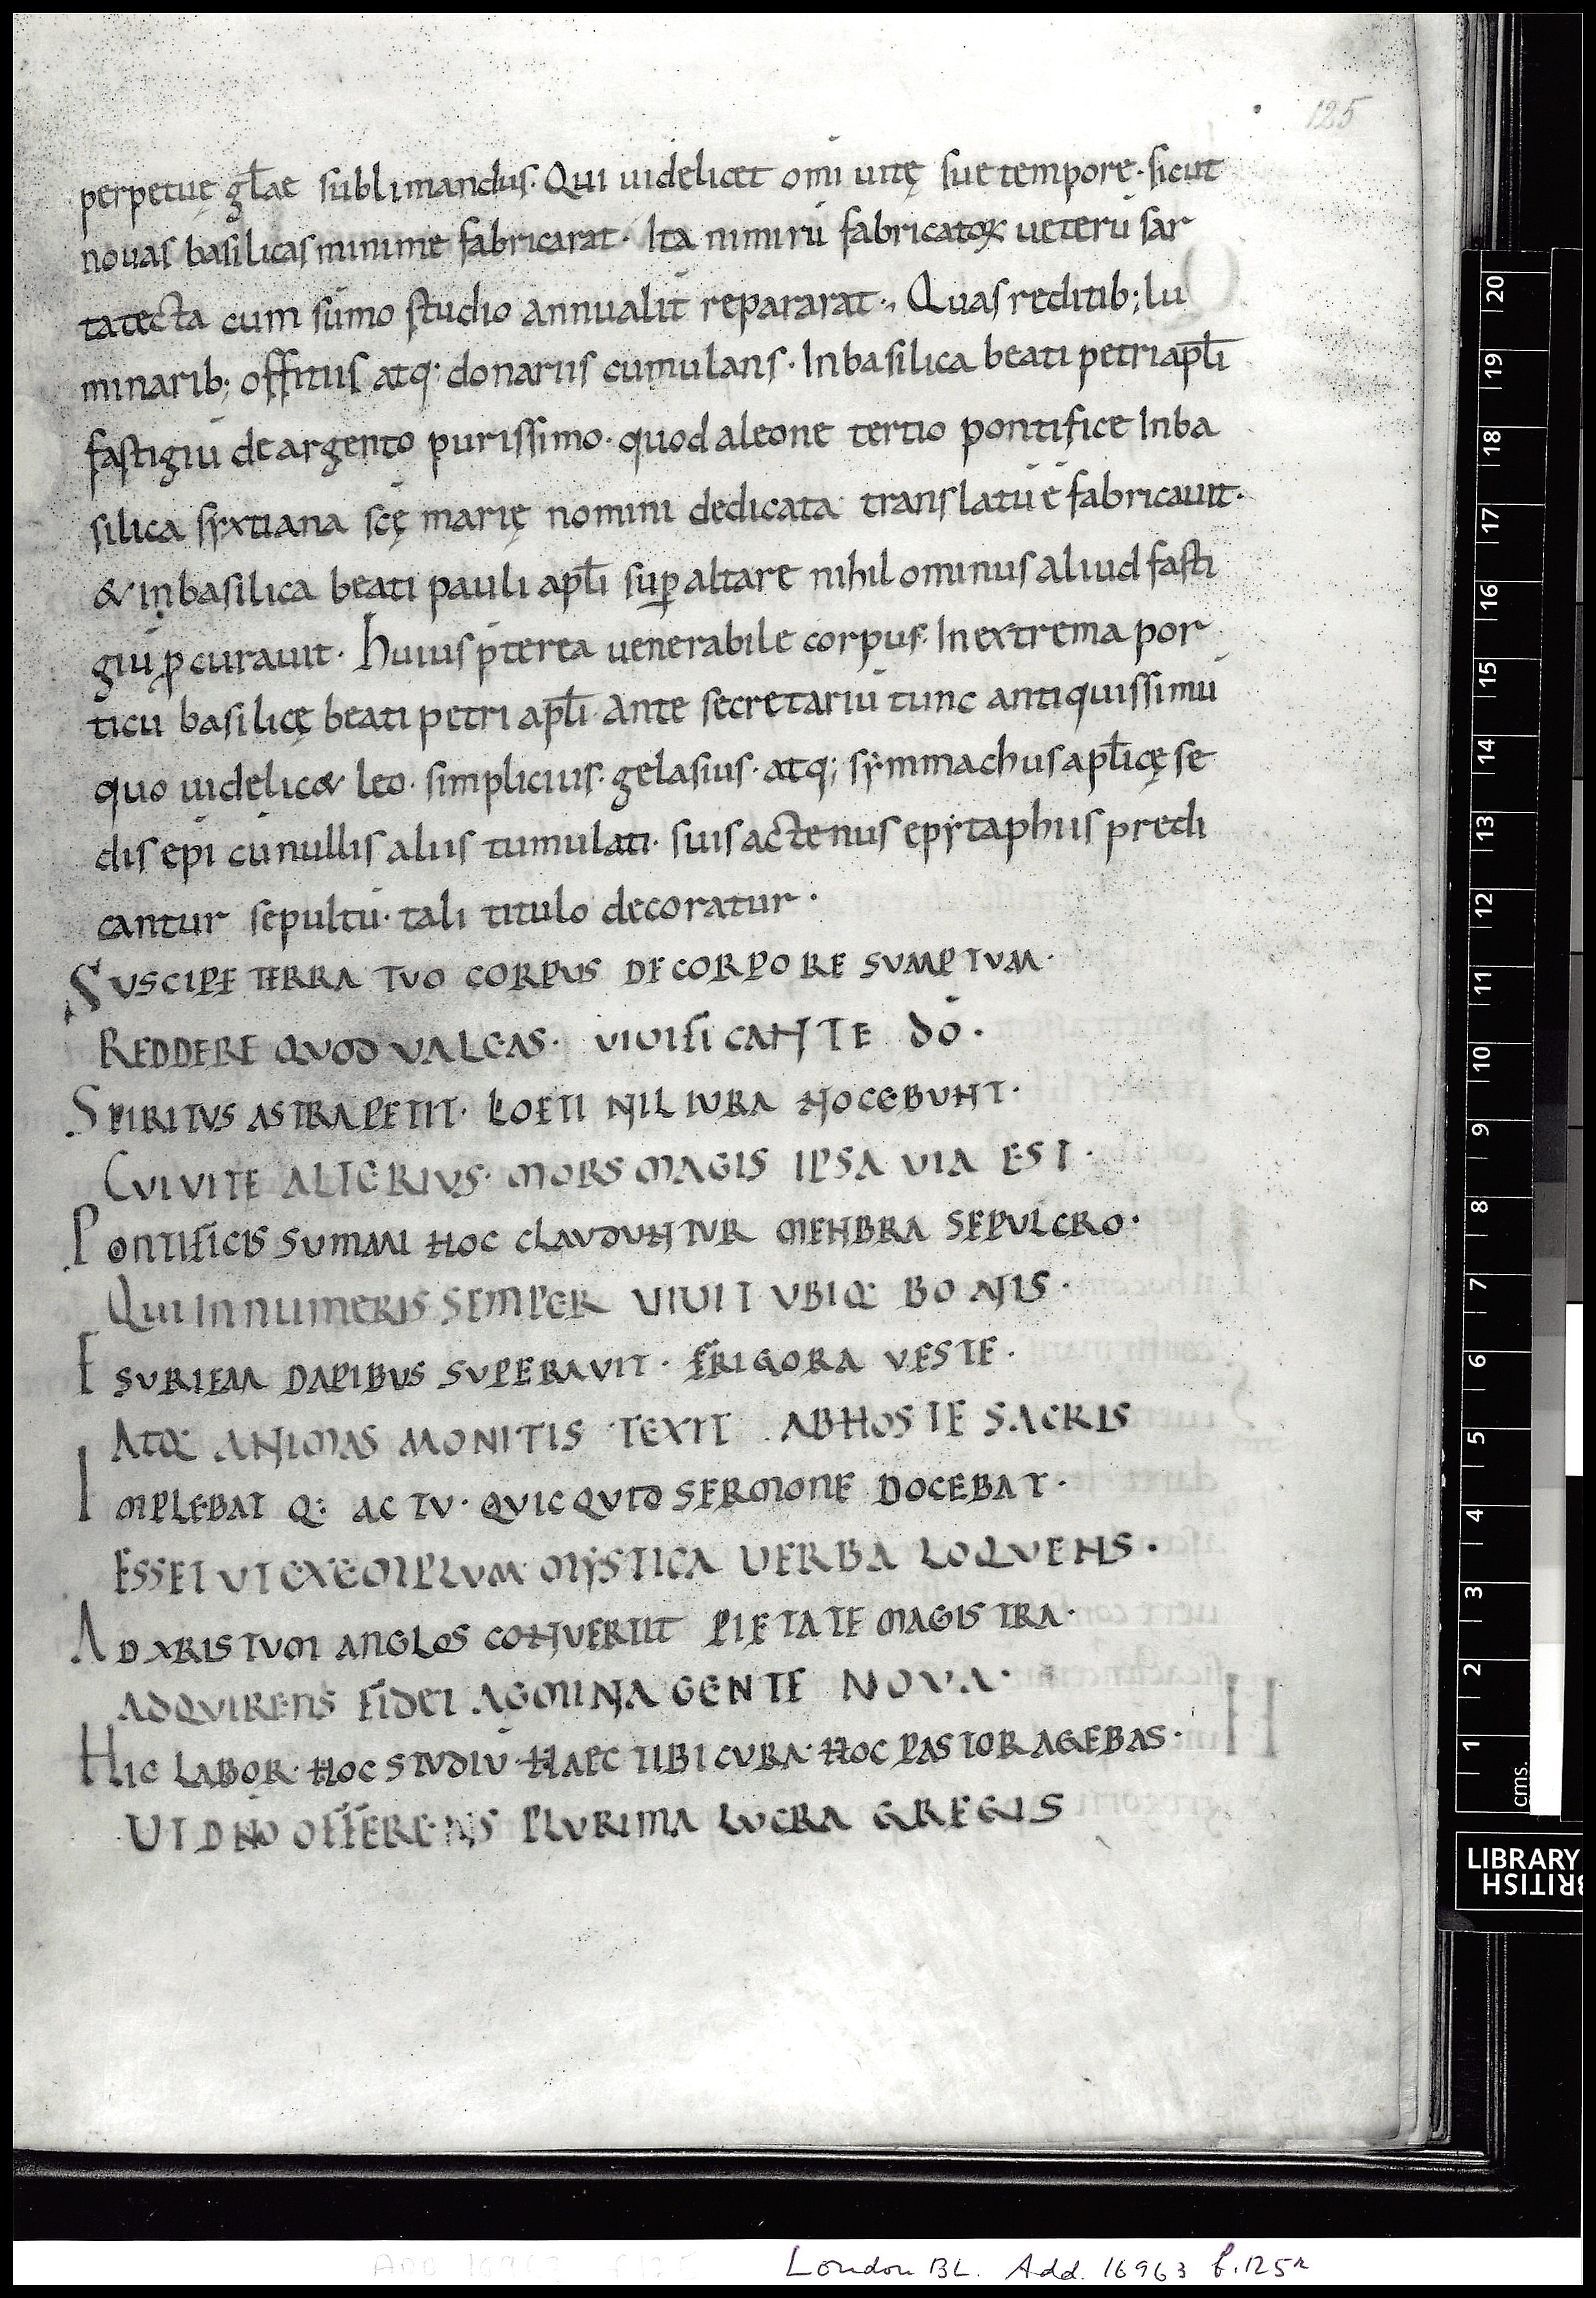 125
perpetuę gl̄ae sublimandus. Qui uidelicet om̄i uitę sue tempore. sicut
nouas basilicas minime fabricarat. Ita nimirū fabricatoꝝ ueterū sar
tatecta cum sūmo studio annualit̄ repararat. Quas reditib; lu
minarib; offitiis atq; donariis cumulans. In basilica beati petri apl̄i
fastigiū de argento purissimo. quod a leone tertio pontifice In ba
silica syxtiana scę̄ marię nomini dedicata translatū ē fabricauit.
& in basilica beati pauli apl̄i suꝑ altare nihilominus aliud fasti
giū ꝓcurauit. Huius p̄terea uenerabile corpus. In extrema por
ticu basilicę beati petri apl̄i. Ante secretariū tunc antiquissimū
quo uidelic& leo. simplicius. gelasius. atq; symmachus apl̄icę se
dis ep̄i cū nullis aliis tumulati. suis actenus epytaphiis predi
cantur sepultū. tali titulo decoratur.
SUSCIPE TERRA TUO CORPUS DE CORPORE SUMPTUM.
REDDERE QUOD VALEAS. VIVIFICANTE D̄O.
SPIRITUS ASTRA PETIT. LOETI NIL IURA NOCEBUNT.
CUI VITE ALTERIUS. MORS MAGIS IPSA VIA EST.
PONTIFICIS SUMMI HOC CLAUDUNTUR MENBRA SEPULCRO.
QUI INNUMERIS SEMPER VIVIT UBIQ; BONIS.
ESURIEM DAPIBUS SUPERAVIT. FRIGORA VESTE.
ATQ; ANIMAS MONITIS TEXIT AB HOSTE SACRIS
IMPLEBAT Q; ACTU. QUICQUID SERMONE DOCEBAT.
ESSET UT EXEMPLUM MYSTICA VERBA LOQUENS.
AD XRISTUM ANGLOS CONVERTIT PIETATE MAGISTRA.
ADQUIRENS FIDEI AGMINA GENTE NOVA.
HIC LABOR. HOC STUDIŪ. HAEC TIBI CURA. HOC PASTOR AGEBAS.
UT DN̄O OFFERENS PLURIMA LUCRA GREGIS
20
19
18
17
16
15
14
13
12
11
10
9
8
7
6
5
4
3
2
1
cms.
LIBRARY
BRITISH
London BL. Add. 16963 f. 125r